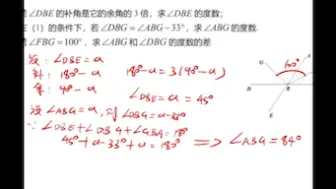 ∠DBE 的补角是它的余角的 3 倍，求 ∠DBE 的度数；
（1）的条件下，若 ∠DBG = ∠ABG − 33°，求 ∠ABG 的度数
∠FBG = 100°，求 ∠ABG 和 ∠DBG 的度数的差.
设：∠DBE = α
补：180° − α 180° − α = 3(90 − α)
余：90 − α
∠DBE = α = 45°
设 ∠ABG = α，则 ∠DBG = α − 33°
∵ ∠DBE + ∠DBG + ∠GBA = 180°
45° + α − 33° + α = 180° ⇒ ∠ABG = 84°
100°
D
B
E